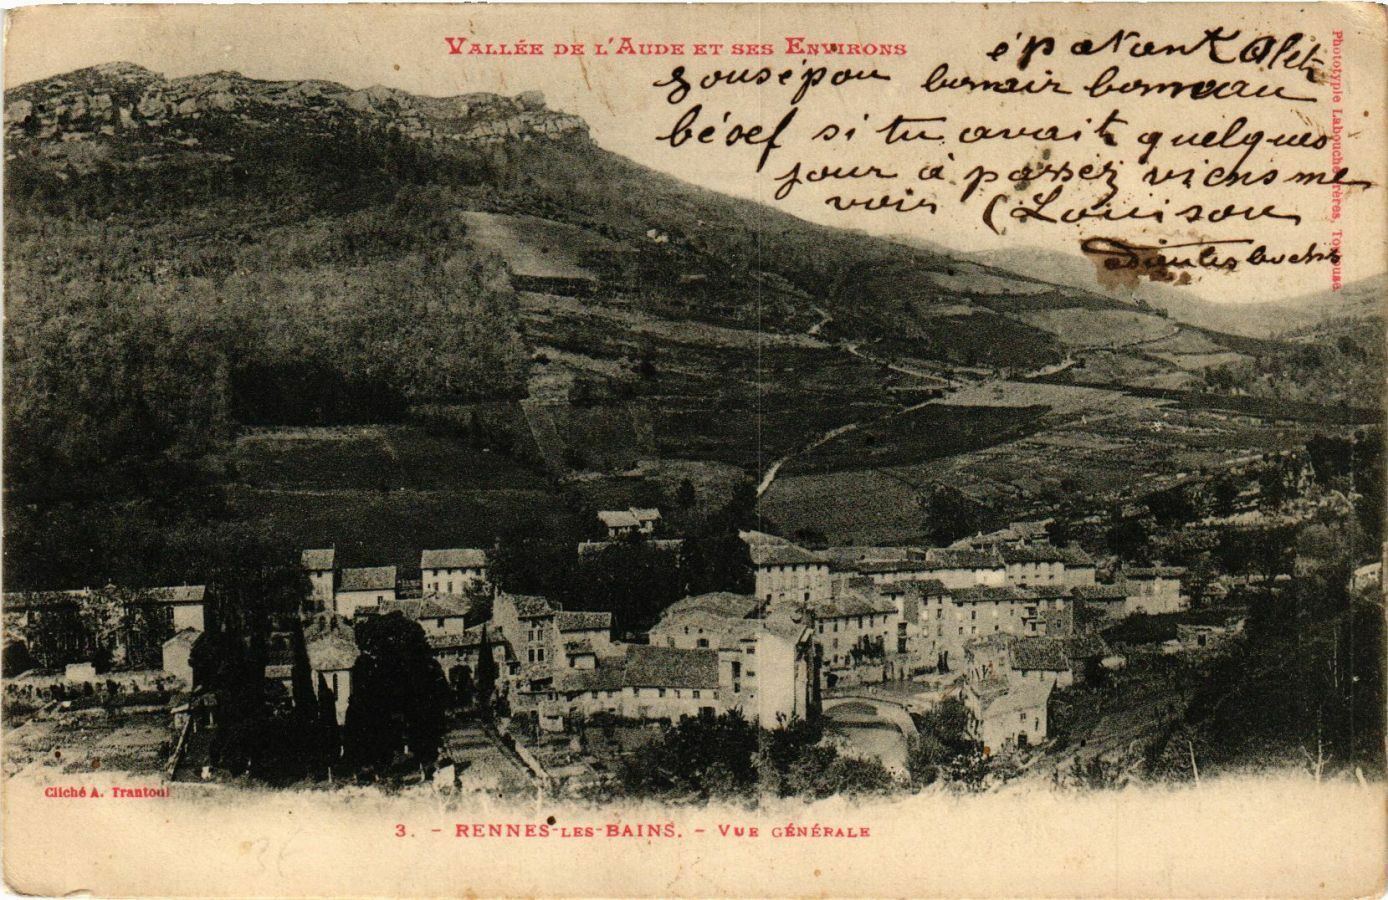 VALLÉE DE L'AUDE ET SES ENVIRONS
épatant Alet
bonair
si tu avait quelques
jour à passez viens me
voir (Louison
Phototypie Labouche Frères, Toulouse
Cliché A. Trantoul
3. - RENNES-LES-BAINS. - VUE GÉNÉRALE